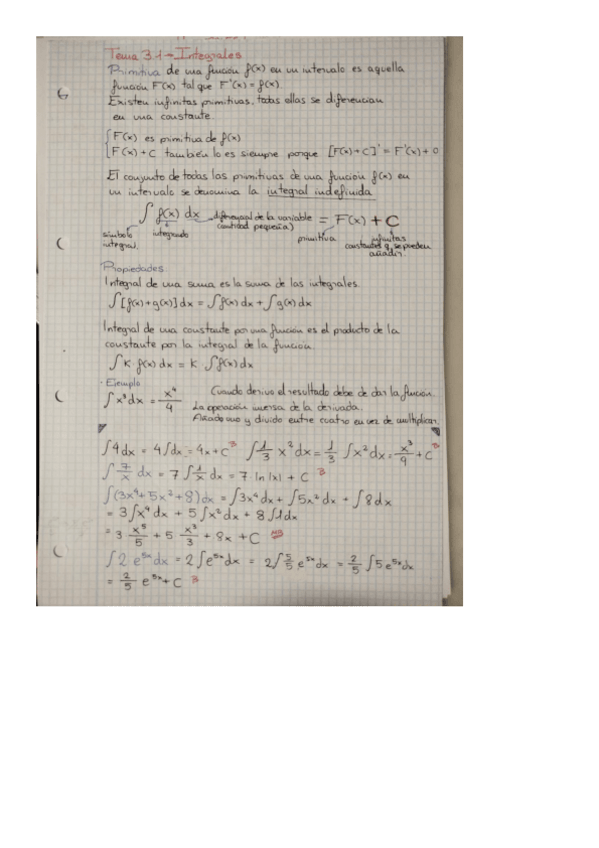 Tema 3.1 → Integrales
Primitiva de una función f(x) en un intervalo es aquella
función F(x) tal que F'(x) = f(x).
Existen infinitas primitivas, todas ellas se diferencian
en una constante.
F(x) es primitiva de f(x)
F(x) + C también lo es siempre porque [F(x)+C]' = F'(x) + 0
El conjunto de todas las primitivas de una función f(x) en
un intervalo se denomina la integral indefinida
∫ f(x) dx → diferencial de la variable (cantidad pequeña) = F(x) + C
símbolo integral.
integrando
primitiva
infinitas constantes q se pueden añadir.
Propiedades
Integral de una suma es la suma de las integrales.
∫[f(x)+g(x)]dx = ∫f(x)dx + ∫g(x)dx
Integral de una constante por una función es el producto de la
constante por la integral de la función.
∫K f(x)dx = K ∫f(x)dx
· Ejemplo
∫x³dx = x⁴/4
Cuando derivo el resultado debe de dar la función.
La operación inversa de la derivada.
Añado uno y divido entre cuatro en vez de multiplicar.
∫4dx = 4∫dx = 4x + C B ∫1/3 x² dx = 1/3 ∫x²dx = x³/9 + C B
∫7/x dx = 7∫1/x dx = 7·ln|x| + C B
∫(3x⁴+5x²+8)dx = ∫3x⁴dx + ∫5x²dx + ∫8dx
= 3∫x⁴dx + 5∫x²dx + 8∫1dx
= 3 x⁵/5 + 5 x³/3 + 8x + C MB
∫2 e⁵ˣdx = 2∫e⁵ˣdx = 2∫5/5 e⁵ˣdx = 2/5 ∫5e⁵ˣdx
= 2/5 e⁵ˣ + C B